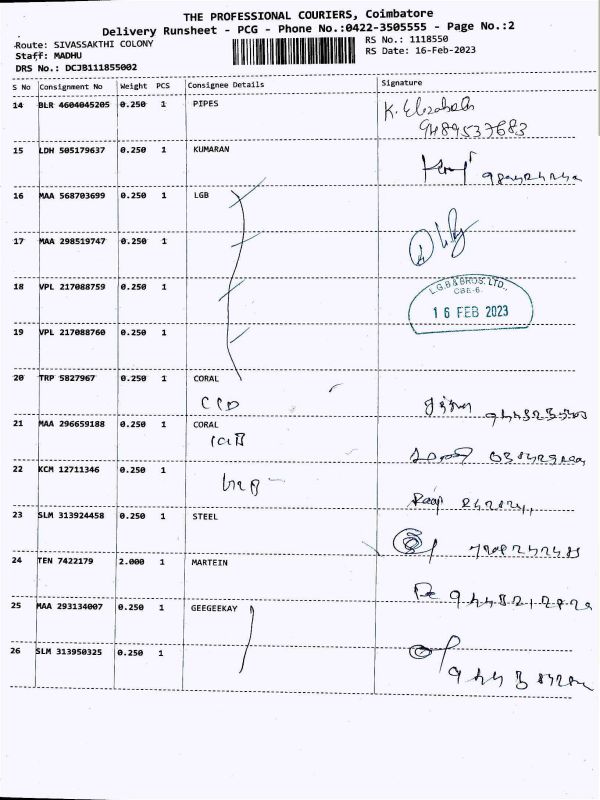 THE PROFESSIONAL COURIERS, Coimbatore
Delivery Runsheet - PCG - Phone No.:0422-3505555 - Page No.:2
Route: SIVASSAKTHI COLONY
RS No.: 1118550
Staff: MADHU
RS Date: 16-Feb-2023
DRS No.: DCJB111855002
S No Consignment No Weight PCS Consignee Details Signature
14 BLR 4604045205 0.250 1 PIPES K. Elizabeth
9489537683
15 LDH 505179637 0.250 1 KUMARAN
16 MAA 568703699 0.250 1 LGB
17 MAA 298519747 0.250 1
18 VPL 217088759 0.250 1
L.G.B & BROS. LTD.,
CBE-6.
16 FEB 2023
19 VPL 217088760 0.250 1
20 TRP 5827967 0.250 1 CORAL
21 MAA 296659188 0.250 1 CORAL
22 KCM 12711346 0.250 1
23 SLM 313924458 0.250 1 STEEL
24 TEN 7422179 2.000 1 MARTEIN
25 MAA 293134007 0.250 1 GEEGEEKAY
26 SLM 313950325 0.250 1